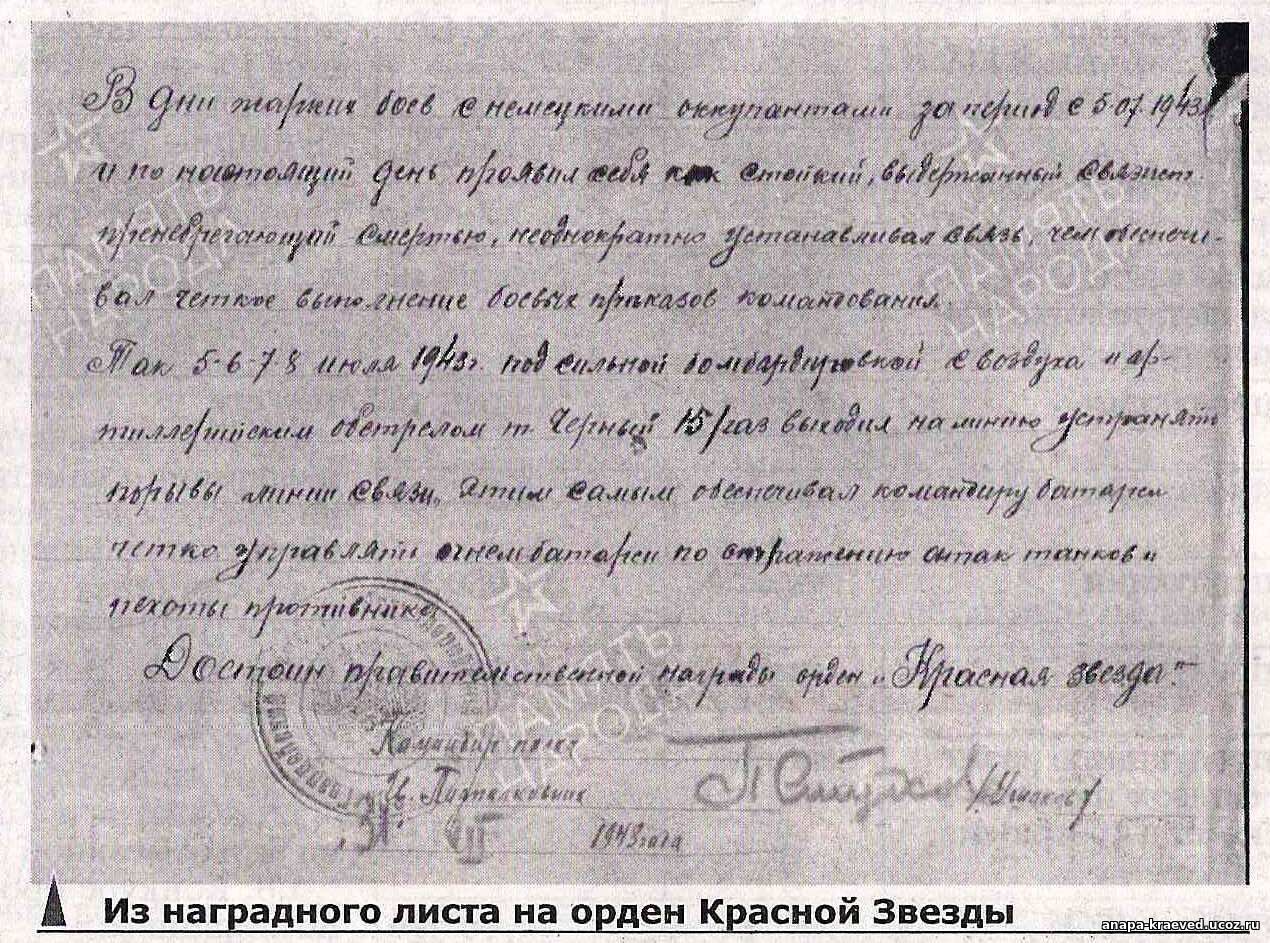 В дни жарких боев с немецкими оккупантами за период с 5.07.1943г
и по настоящий день проявил себя как стойкий, выдержанный связист
пренебрегающий смертью, неоднократно устанавливал связь, чем обеспечи-
вал четкое выполнение боевых приказов командования.
Так 5-6-7-8 июля 1943г. под сильной бомбардировкой с воздуха и ар-
тиллерийским обстрелом т. Черный 15 раз выходил на линию устранять
порывы линии связи, этим самым обеспечивал командиру батареи
четко управлять огнем батареи по отражению атак танков и
пехоты противника.
Достоин правительственной награды орден "Красная звезда."
Командир полка
Подполковник
1943 года
ПАМЯТЬ НАРОДА
ПАМЯТЬ НАРОДА
ПАМЯТЬ НАРОДА
Из наградного листа на орден Красной Звезды
anapa-kraeved.ucoz.ru